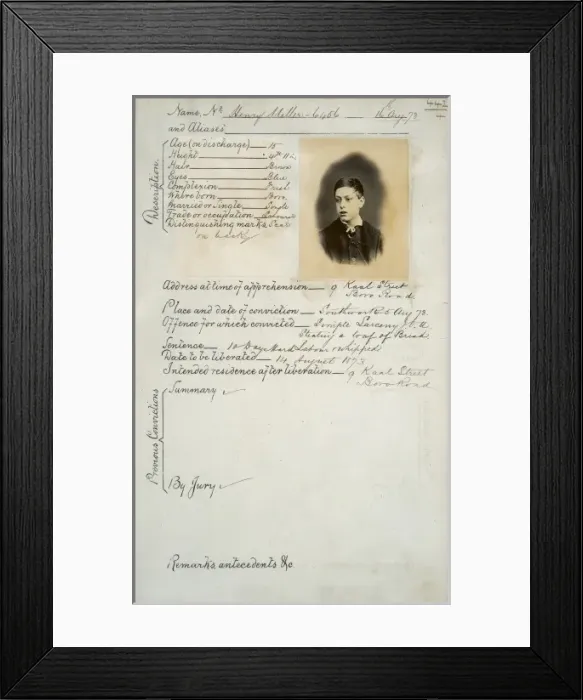 442
4
Name, No. Henry Miller - 6456 — 14 Aug 73
and Aliases
Description
Age (on discharge) — 15
Height — 4ft 11
Hair — Brown
Eyes — Blue
Complexion — Fresh
Where born — Boro
Married or Single — Single
Trade or occupation — Labourer
Distinguishing marks, Scar
on
Address at time of apprehension — 9 Street
Boro Road
Place and date of conviction — Southwark 5 Aug 73.
Offence for which convicted — Simple Larceny
Stealing a loaf of Bread
Sentence — 10 Days Hard Labour & whipped
Date to be liberated — 14 August 1873
Intended residence after liberation — 9 Street
Boro Road
Previous Convictions
Summary
By Jury
Remarks, antecedents &c